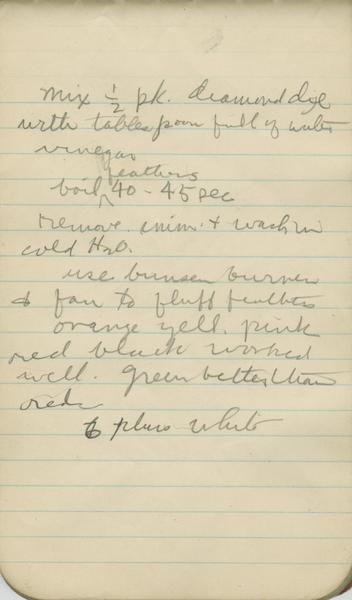 mix ½ pk. diamond dye
with tablespoon full of water
vinegar
feathers
boil 40 - 45 sec
remove. & wash in
cold H2O.
use bunsen burner
& fan to fluff feathers
orange yell. pink
red black worked
well. green better than
red
6 plus white